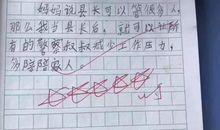 妈妈说县长可以管很多人,
那么我当县长后,就可以让所
有的警察叔叔减少工作压力,
多陪陪家人。